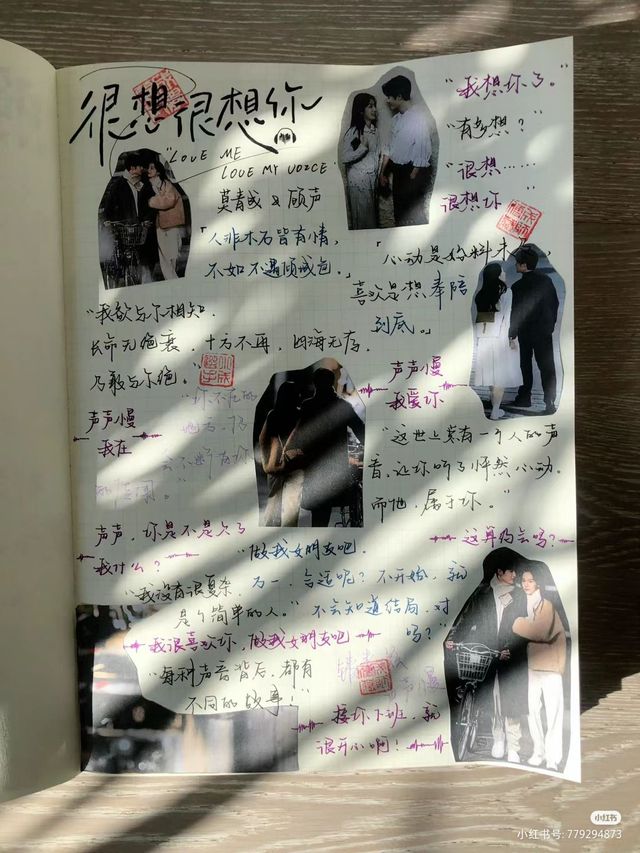 很想很想你
"LOVE ME
LOVE MY VOICE
莫青成 & 顾声
"我想你了。"
"有多想？"
"很想……
很想你
「人非木石皆有情，
不如不遇倾城色。」
「心动是始料未
喜欢是想奉陪
到底。」
"我欲与尔相知，
长命无绝衰，十方不再，四海无存，
乃敢与尔绝。"
声声慢
我在
声声慢
我爱你
"你不在的
地方，
"这世上总有一个人的声
音，让你听了怦然心动。
而他，属于你。"
声声，你是不是欠了
我什么？
这算约会吗？
"做我女朋友吧。
万一，合适呢？不开始，就
不会知道结局，对
吗？"
"我没有很复杂，
是个简单的人。"
我很喜欢你，做我女朋友吧
"每种声音背后，都有
不同的故事！"
接你下班，就
很开心啊！
小红书
小红书号: 779294873